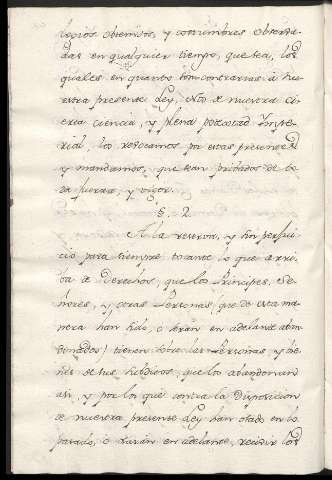 legios obtenidos, y costumbres observa-
das en qualquier tiempo, que sea, los
quales en quanto son contrarias à nu-
estra presente Ley, Nos de nuestra ci-
erta ciencia, y plena potestad Impe-
rial, los revocamos por estas presentes
y mandamos, que sean privados de to-
da fuerza, y vigor.
§. 2
A la reserva, y sin perjui-
cio para siempre tocante lo que arri-
ba de Derechos, que los Principes, Se-
ñores, y otras Personas, que de esta ma-
nera han sido, o seran en adelante aban-
donados) tienen sobre las Personas, y bie-
nes de sus subditos, que los abandonan
asi, y por los que contra la Disposicion
de nuestra presente Ley han osado en lo
pasado, o osaran en adelante, recivir los